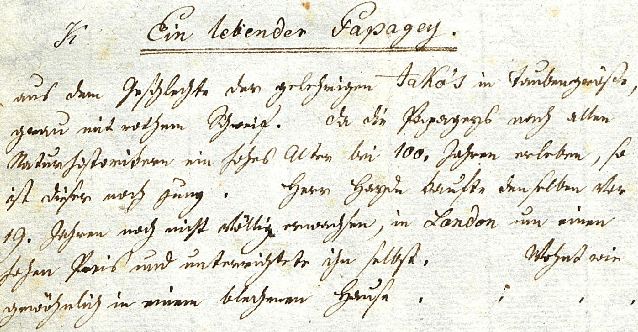 K Ein lebender Papagey.
aus dem Geschlechte der gelehrigen Jako's in Taubengröße,
grau mit rothem Schweif. Da die Papageys nach allen
Naturhistorikern ein hohes Alter bei 100. Jahren erleben, so
ist dieser noch jung. Herr Haydn kaufte denselben vor
19. Jahren noch nicht völlig erwachsen, in London um einen
hohen Preis und unterrichtete ihn selbst. Wohnt wie
gewöhnlich in einem blechenen Hause . . . .